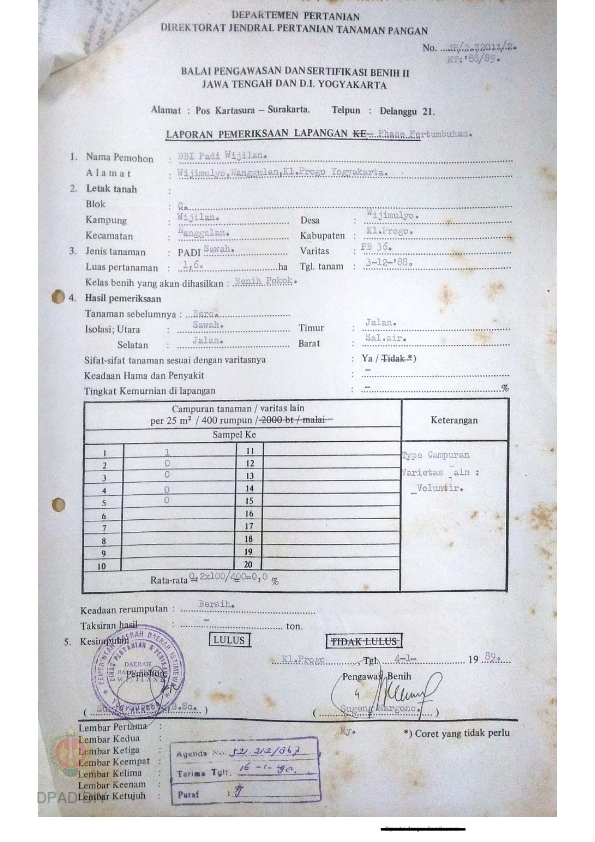 DEPARTEMEN PERTANIAN
DIREKTORAT JENDRAL PERTANIAN TANAMAN PANGAN
No.
MT:'88/89.
BALAI PENGAWASAN DAN SERTIFIKASI BENIH II
JAWA TENGAH DAN D.I. YOGYAKARTA
Alamat : Pos Kartasura – Surakarta. Telpun : Delanggu 21.
LAPORAN PEMERIKSAAN LAPANGAN KE– Phase Pertumbuhan.
1. Nama Pemohon : BBI Padi Wijilan.
Alamat : Wijimulyo, Nanggulan, Kl.Progo Yogyakarta.
2. Letak tanah :
Blok :
Kampung : Wijilan. Desa : Wijimulyo.
Kecamatan : Nanggulan. Kabupaten : Kl.Progo.
3. Jenis tanaman : PADI Sawah. Varitas : PB 36.
Luas pertanaman : 1,6. ha Tgl. tanam : 3-12-'88.
Kelas benih yang akan dihasilkan : Benih Pokok.
4. Hasil pemeriksaan
Tanaman sebelumnya : Bero.
Isolasi; Utara : Sawah. Timur : Jalan.
Selatan : Jalan. Barat : Sal.air.
Sifat-sifat tanaman sesuai dengan varitasnya : Ya / Tidak *)
Keadaan Hama dan Penyakit : –
Tingkat Kemurnian di lapangan : – %
Campuran tanaman / varitas lain
per 25 m² / 400 rumpun / 2000 bt / malai
Keterangan
Sampel Ke
1 1 11
2 0 12
3 0 13
4 0 14
5 0 15
6 16
7 17
8 18
9 19
10 20
Type Campuran
Varietas lain :
Voluntir.
Rata-rata 0,2x100/400=0,0 %
Keadaan rerumputan : Bersih.
Taksiran hasil : – ton.
5. Kesimpulan LULUS TIDAK LULUS
Kl.Progo Tgl. 4-1- 1989.
Pemohon Pengawas Benih
( Sugeng Hargono. )
Lembar Pertama : My. *) Coret yang tidak perlu
Lembar Kedua :
Lembar Ketiga :
Lembar Keempat :
Lembar Kelima :
Lembar Keenam :
Lembar Ketujuh :
Agenda No.
Terima Tgl:
Paraf :
DPAD DIY